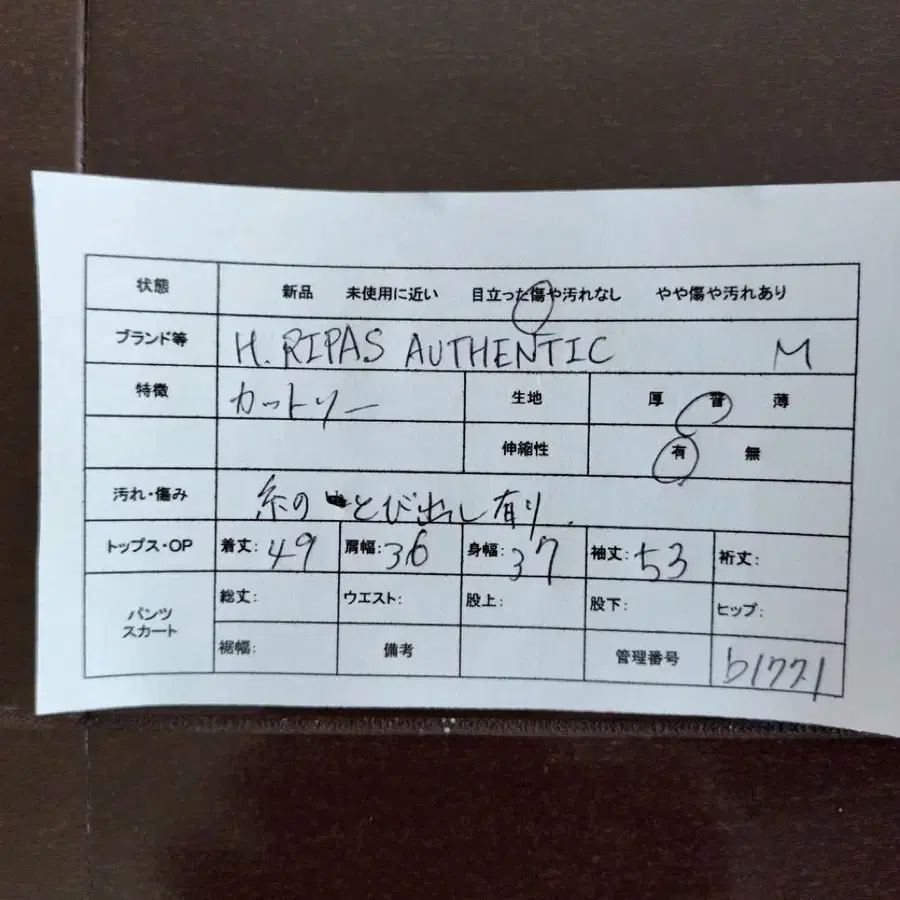 状態 新品 未使用に近い 目立った傷や汚れなし やや傷や汚れあり
ブランド等 H. RIPAS AUTHENTIC M
特徴 カットソー 生地 厚 普 薄
伸縮性 有 無
汚れ・傷み 糸のとび出し有り.
トップス・OP 着丈: 49 肩幅: 36 身幅: 37 袖丈: 53 裄丈:
パンツ スカート 総丈: ウエスト: 股上: 股下: ヒップ:
裾幅: 備考 管理番号 b1771